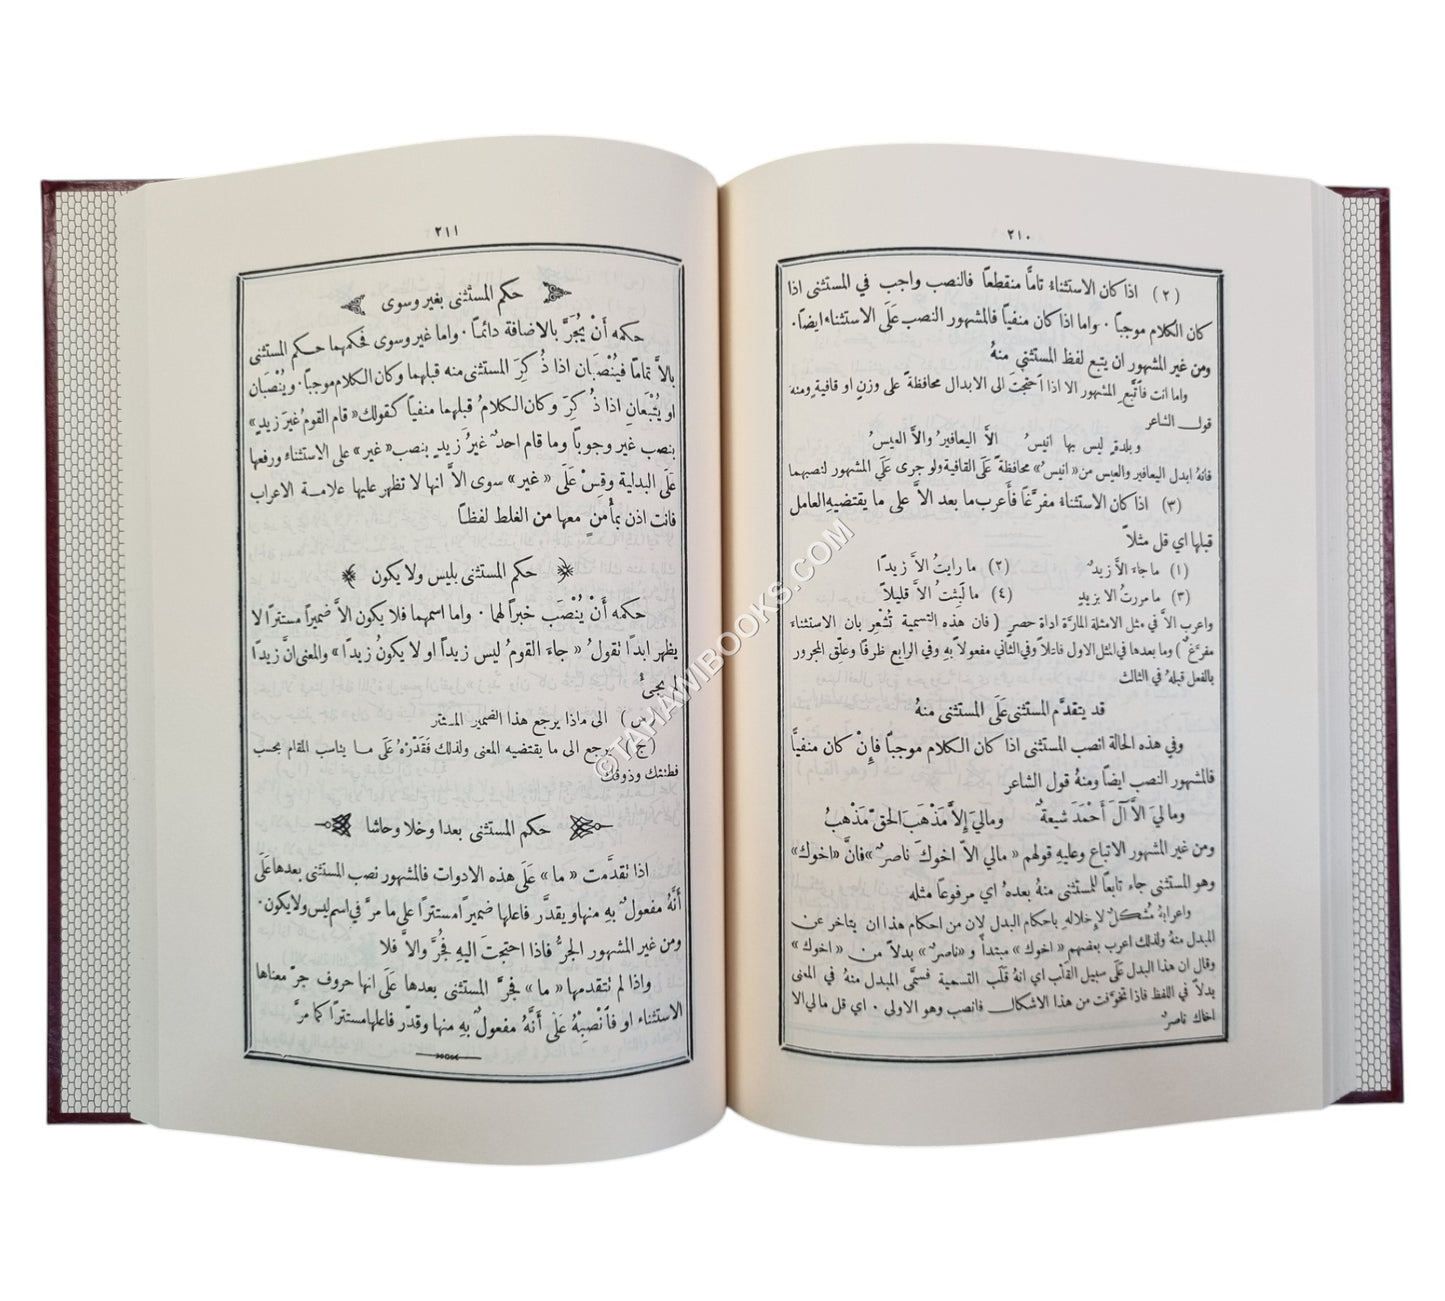 ٢١٠
(٢) اذا كان الاستثناءُ تامًّا منقطعًا فالنصب واجب في المستثنى اذا
كان الكلام موجبًا . واما اذا كان منفيًا فالمشهور النصب عَلَى الاستثناءِ ايضًا.
ومن غير المشهور ان يتبع لفظ المستثنى منهُ
واما انت فاَتَّبِع المشهور الا اذا اَحتجتَ الى الابدال محافظةً على وزنٍ او قافيةٍ ومنه
قول الشاعر
وبلدةٍ ليس بها انيسُ الاَّ اليعافيرُ والاَّ العيسُ
فانهُ ابدل اليعافير والعيس من «انيسُ» محافظةً عَلَى القافية ولو جرى عَلَى المشهور لنصبهما
(٣) اذا كان الاستثناءُ مفرَّغًا فأَعرب ما بعد الاَّ على ما يقتضيهِ العامل
قبلها اي قل مثلاً
(١) ما جاءَ الاَّ زيدٌ (٢) ما رايتُ الاَّ زيدًا
(٣) ما مررتُ الا بزيدٍ (٤) ما لَبِثت الاَّ قليلاً
واعرب الاَّ في مثل الامثلة المارَّة اداة حصرٍ ( فان هذه التسمية تُشْعِر بان الاستثناء
مفرَّغٌ ) وما بعدها في المثل الاول فاعلاً وفي الثاني مفعولاً بهِ وفي الرابع ظرفًا وعلّق المجرور
بالفعل قبلهُ في الثالث
قد يتقدَّم المستثنى عَلَى المستثنى منهُ
وفي هذه الحالة انصب المستثنى اذا كان الكلام موجبًا فإِنْ كان منفيًّا
فالمشهور النصب ايضًا ومنهُ قول الشاعر
وما ليَ الاَّ آلَ أَحْمَدَ شيعةٌ وماليَ إِلاَّ مَذْهَبَ الحَقِّ مَذْهبُ
ومن غير المشهور الاتباع وعليهِ قولهم «مالي الاَّ اخوكَ ناصرٌ» فانَّ «اخوك»
وهو المستثنى جاء تابعًا للمستثنى منهُ بعدهُ اي مرفوعًا مثله
واعرابهُ مُشكلٌ لإِخلالهِ باحكام البدل لان من احكام هذا ان يتاخر عن
المبدل منهُ ولذلك اعرب بعضهم «اخوك» مبتدأ و«ناصرٌ» بدلاً من «اخوك»
وقال ان هذا البدل عَلَى سبيل القلب اي انهُ قلب التسمية فسمَّى المبدل منهُ في المعنى
بدلاً في اللفظ فاذا تخوَّفت من هذا الاشكال فانصب وهو الاولى . اي قل مالي الا
اخاك ناصرٌ
٢١١
حكم المستثنى بغير وسوى
حكمه أَنْ يُجَرَّ بالاضافة دائمًا . واما غير وسوى فحكمهما حكم المستثنى
بالاَّ تمامًا فيُنْصَبان اذا ذُكِرَ المستثنى منه قبلهما وكان الكلام موجبًا . ويُنْصَبان
او يُتْبَعانِ اذا ذُكِرَ وكان الكلامُ قبلهما منفيًا كقولك «قام القومُ غيرَ زيدٍ»
بنصب غير وجوبًا وما قام احدٌ غيرُ زيدٍ بنصب «غير» على الاستثناء ورفعها
عَلَى البدلية وقِسْ عَلَى «غير» سوى الاَّ انها لا تظهر عليها علامة الاعراب
فانت اذن بمأْمنٍ معها من الغلط لفظًا
حكم المستثنى بليس ولا يكون
حكمه أَنْ يُنْصَب خبرًا لها . واما اسمهما فلا يكون الاَّ ضميرًا مستترًا لا
يظهر ابدًا نقولُ «جاءَ القومُ ليس زيدًا او لا يكونُ زيدًا» والمعنى انَّ زيدًا
يجئُ
س ) الى ماذا يرجع هذا الضمير المستتر
(ج ) يرجع الى ما يقتضيه المعنى ولذلك فَقَدّرْهُ عَلَى ما يناسب المقام بحسب
فطنتك وذوقك
حكم المستثنى بعدا وخلا وحاشا
اذا نقدَّمت «ما» عَلَى هذه الادوات فالمشهور نصب المستثنى بعدها عَلَى
أَنَّهُ مفعولٌ بهِ منها ويقدَّر فاعلها ضميرًا مستترًا على ما مرَّ في اسم ليس ولا يكون.
ومن غير المشهور الجرُّ فاذا احتجتَ اليهِ فجُرَّ والاَّ فلا
واذا لم نتقدمها «ما» فجرَّ المستثنى بعدها عَلَى انها حروف جرّ معناها
الاستثناء او فاَنْصِبْهُ عَلَى أَنَّهُ مفعولٌ بهِ منها وقدّر فاعلها مستترًا كما مرَّ
©TAHAWIBOOKS.COM